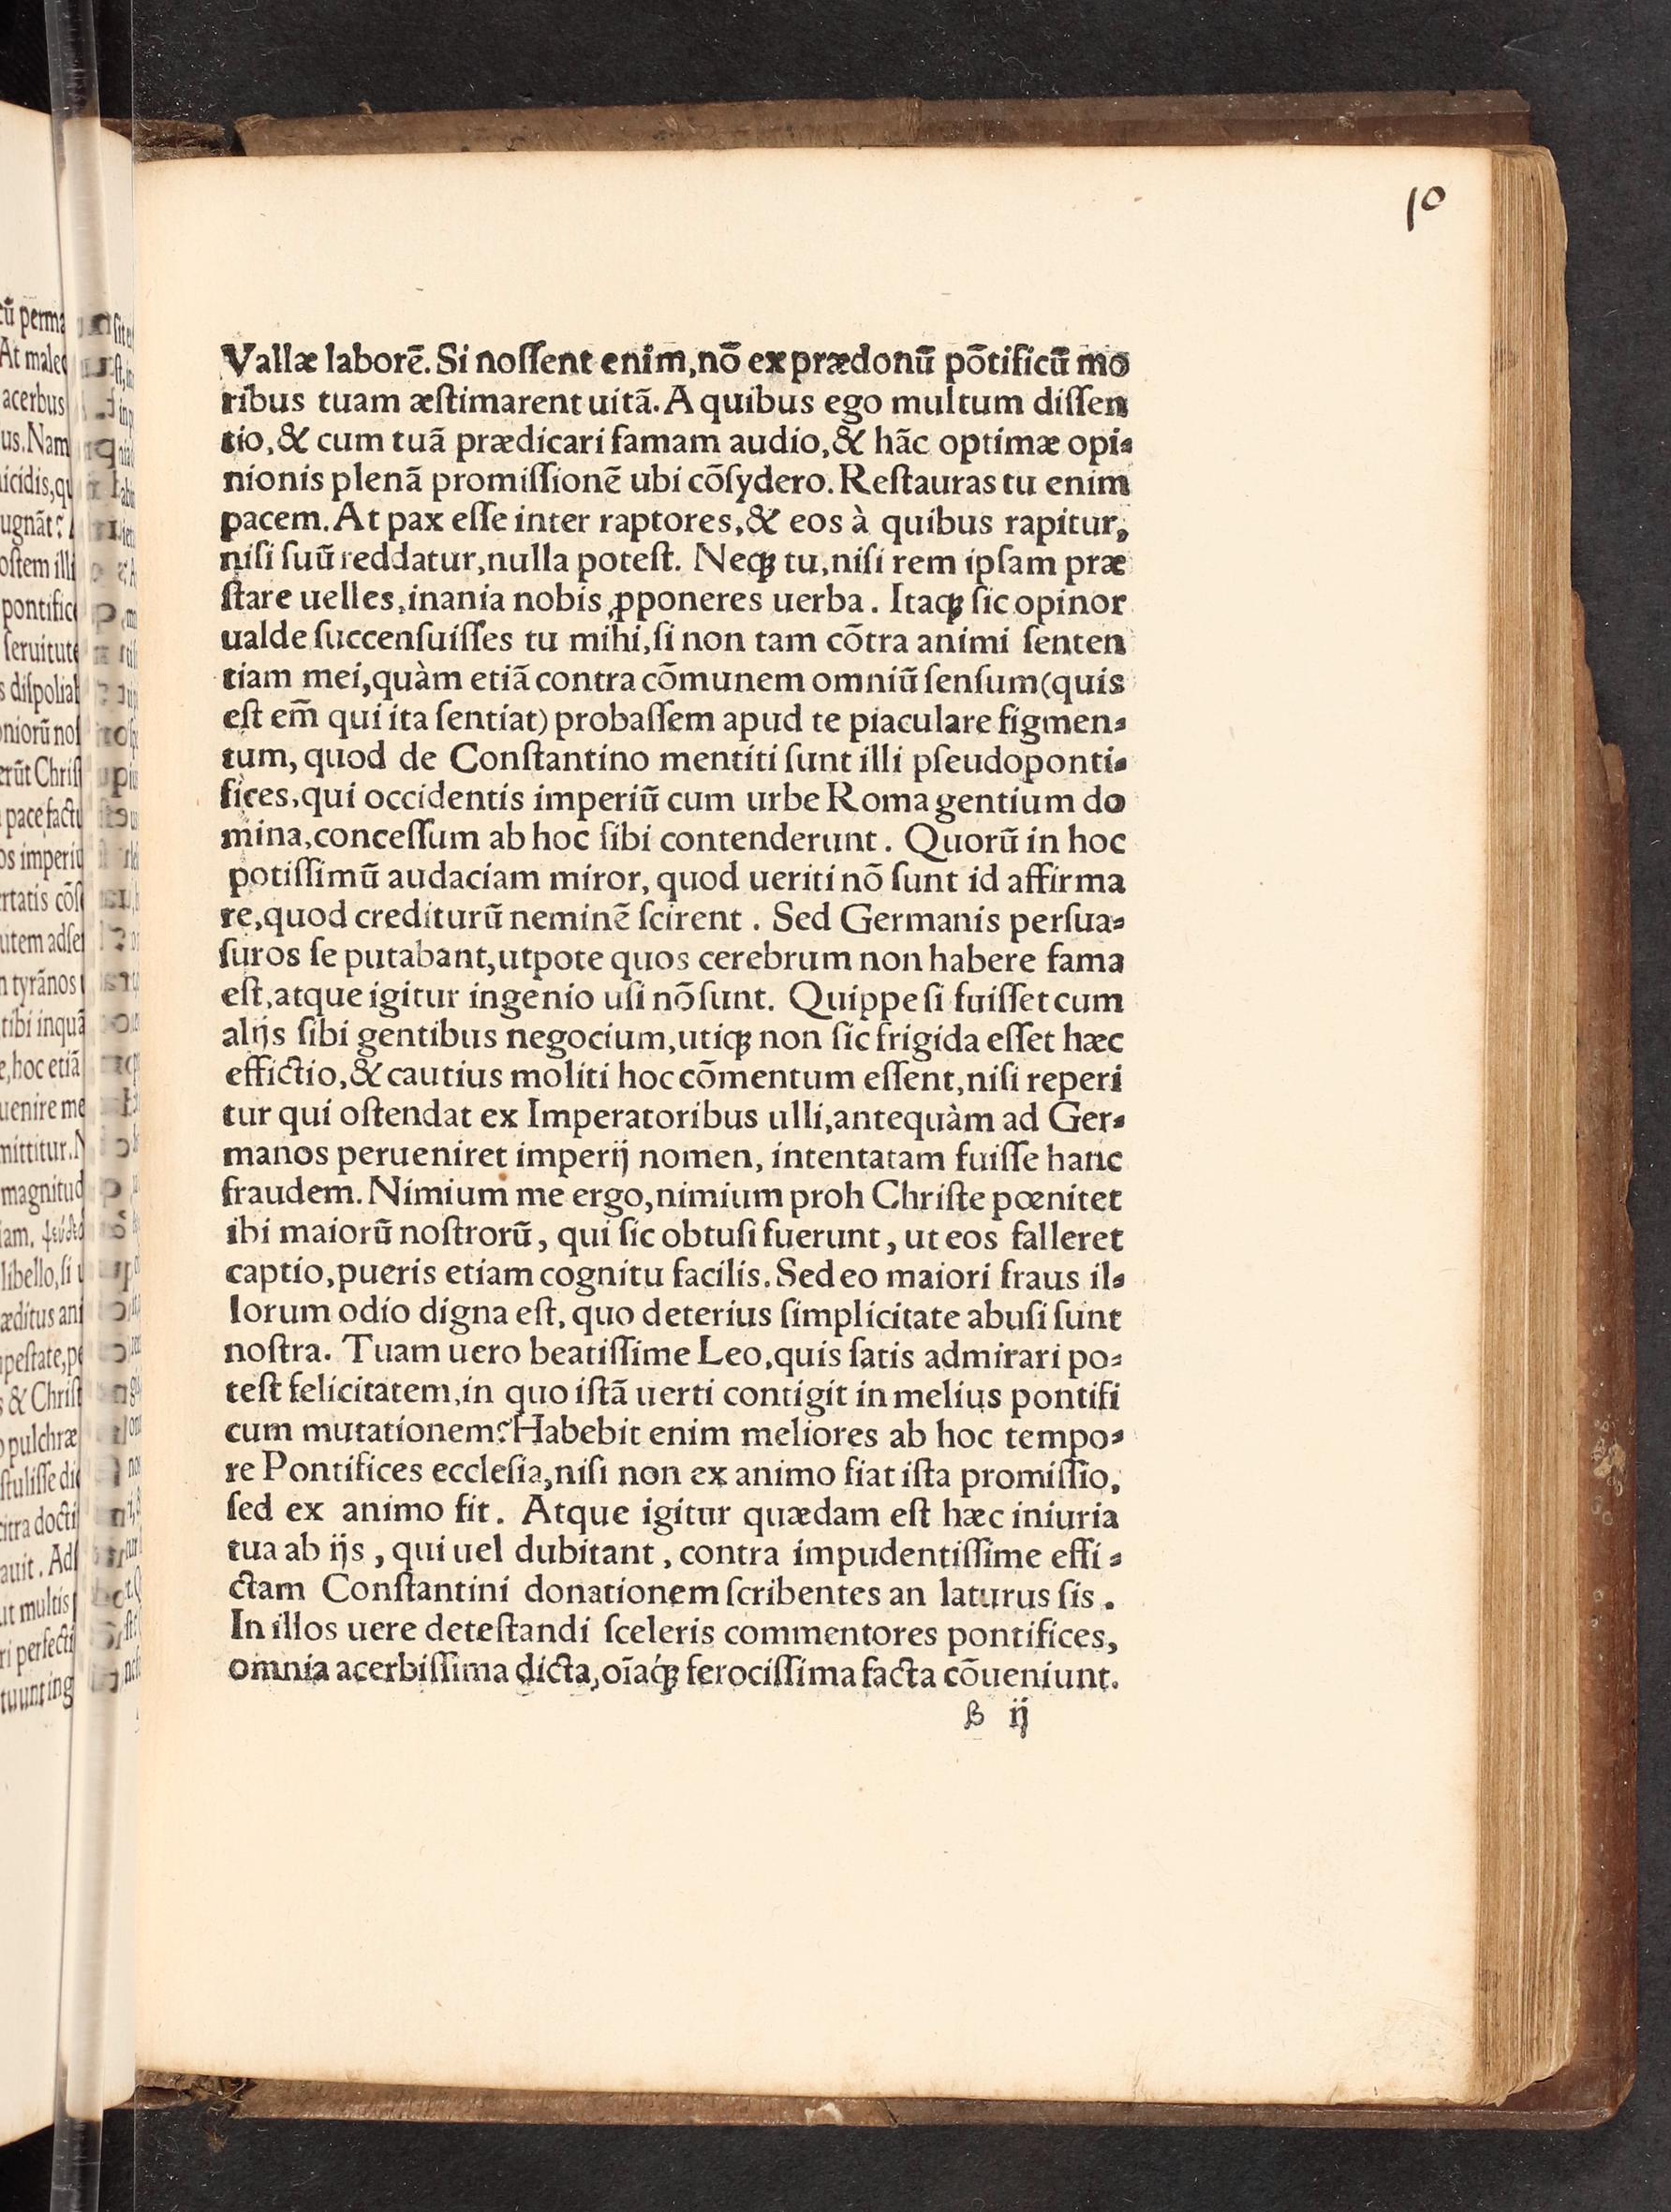 10
Vallæ laborē. Si noſſent enim, nō ex prædonū pōtificū mo
ribus tuam æſtimarent uitā. A quibus ego multum diſſen
tio, & cum tuā prædicari famam audio, & hāc optimæ opi⸗
nionis plenā promiſſionē ubi cōſydero. Reſtauras tu enim
pacem. At pax eſſe inter raptores, & eos à quibus rapitur,
niſi ſuū reddatur, nulla poteſt. Neqꝫ tu, niſi rem ipſam præ
ſtare uelles, inania nobis ꝓponeres uerba. Itaqꝫ ſic opinor
ualde ſuccenſuiſſes tu mihi, ſi non tam cōtra animi ſenten
tiam mei, quàm etiā contra cōmunem omniū ſenſum (quis
eſt em̄ qui ita ſentiat) probaſſem apud te piaculare figmen⸗
tum, quod de Conſtantino mentiti ſunt illi pſeudoponti⸗
fices, qui occidentis imperiū cum urbe Roma gentium do
mina, conceſſum ab hoc ſibi contenderunt. Quorū in hoc
potiſſimū audaciam miror, quod ueriti nō ſunt id affirma
re, quod crediturū neminē ſcirent. Sed Germanis perſua⸗
ſuros ſe putabant, utpote quos cerebrum non habere fama
eſt, atque igitur ingenio uſi nō ſunt. Quippe ſi fuiſſet cum
alijs ſibi gentibus negocium, utiqꝫ non ſic frigida eſſet hæc
effictio, & cautius moliti hoc cōmentum eſſent, niſi reperi
tur qui oſtendat ex Imperatoribus ulli, antequàm ad Ger⸗
manos perueniret imperij nomen, intentatam fuiſſe hanc
fraudem. Nimium me ergo, nimium proh Chriſte pœnitet
ibi maiorū noſtrorū, qui ſic obtuſi fuerunt, ut eos falleret
captio, pueris etiam cognitu facilis. Sed eo maiori fraus il⸗
lorum odio digna eſt, quo deterius ſimplicitate abuſi ſunt
noſtra. Tuam uero beatiſſime Leo, quis ſatis admirari po⸗
teſt felicitatem, in quo iſtā uerti contigit in melius pontifi
cum mutationem? Habebit enim meliores ab hoc tempo⸗
re Pontifices eccleſia, niſi non ex animo fiat iſta promiſſio,
ſed ex animo fit. Atque igitur quædam eſt hæc iniuria
tua ab ijs, qui uel dubitant, contra impudentiſſime effi⸗
ctam Conſtantini donationem ſcribentes an laturus ſis.
In illos uere deteſtandi ſceleris commentores pontifices,
omnia acerbiſſima dicta, oīaqꝫ́ ferociſſima facta cōueniunt.
B ij